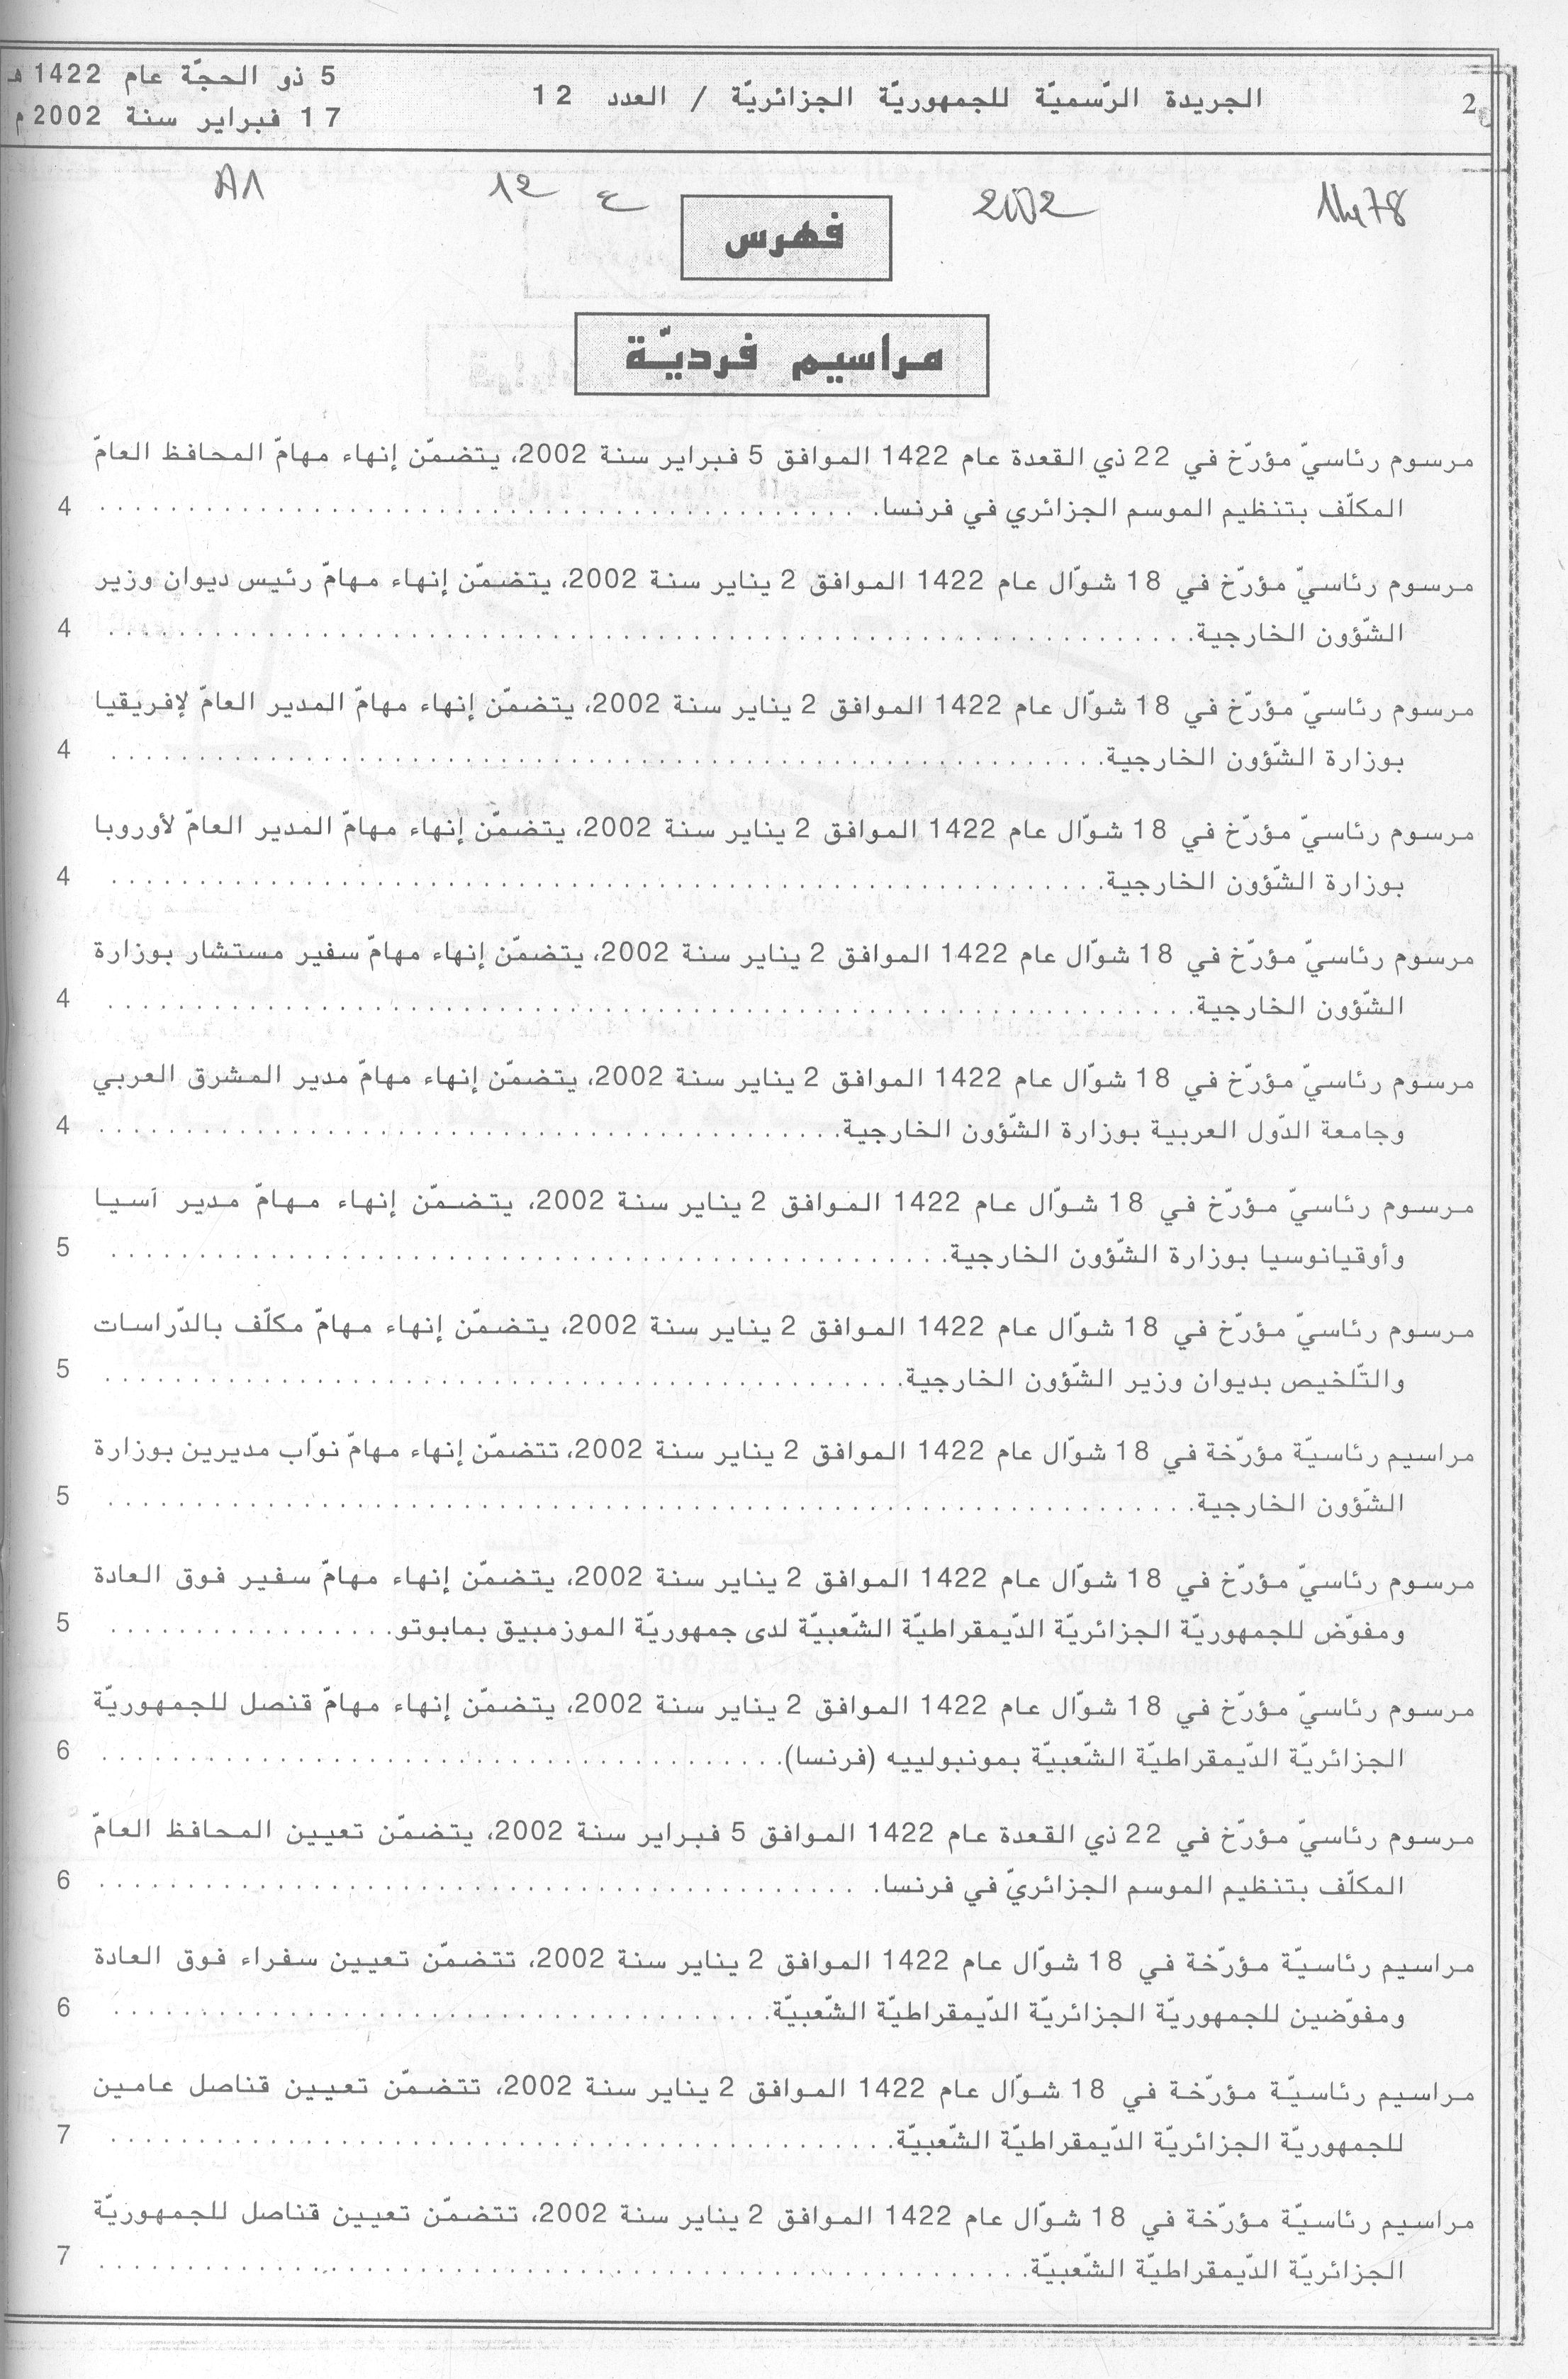 2
الجريدة الرّسميّة للجمهوريّة الجزائريّة / العدد 12
5 ذو الحجّة عام 1422 هـ
17 فبراير سنة 2002 م
2002
ع 12
A1
فهرس
مراسيم فرديّة
مرسوم رئاسيّ مؤرّخ في 22 ذي القعدة عام 1422 الموافق 5 فبراير سنة 2002، يتضمّن إنهاء مهامّ المحافظ العامّ
المكلّف بتنظيم الموسم الجزائري في فرنسا. 4
مرسوم رئاسيّ مؤرّخ في 18 شوّال عام 1422 الموافق 2 يناير سنة 2002، يتضمّن إنهاء مهامّ رئيس ديوان وزير
الشّؤون الخارجية. 4
مرسوم رئاسيّ مؤرّخ في 18 شوّال عام 1422 الموافق 2 يناير سنة 2002، يتضمّن إنهاء مهامّ المدير العامّ لإفريقيا
بوزارة الشّؤون الخارجية. 4
مرسوم رئاسيّ مؤرّخ في 18 شوّال عام 1422 الموافق 2 يناير سنة 2002، يتضمّن إنهاء مهامّ المدير العامّ لأوروبا
بوزارة الشّؤون الخارجية. 4
مرسوم رئاسيّ مؤرّخ في 18 شوّال عام 1422 الموافق 2 يناير سنة 2002، يتضمّن إنهاء مهامّ سفير مستشار بوزارة
الشّؤون الخارجية. 4
مرسوم رئاسيّ مؤرّخ في 18 شوّال عام 1422 الموافق 2 يناير سنة 2002، يتضمّن إنهاء مهامّ مدير المشرق العربي
وجامعة الدّول العربية بوزارة الشّؤون الخارجية. 4
مرسوم رئاسيّ مؤرّخ في 18 شوّال عام 1422 الموافق 2 يناير سنة 2002، يتضمّن إنهاء مهامّ مدير آسيا
وأوقيانوسيا بوزارة الشّؤون الخارجية. 5
مرسوم رئاسيّ مؤرّخ في 18 شوّال عام 1422 الموافق 2 يناير سنة 2002، يتضمّن إنهاء مهامّ مكلّف بالدّراسات
والتّلخيص بديوان وزير الشّؤون الخارجية. 5
مراسيم رئاسيّة مؤرّخة في 18 شوّال عام 1422 الموافق 2 يناير سنة 2002، تتضمّن إنهاء مهامّ نوّاب مديرين بوزارة
الشّؤون الخارجية. 5
مرسوم رئاسيّ مؤرّخ في 18 شوّال عام 1422 الموافق 2 يناير سنة 2002، يتضمّن إنهاء مهامّ سفير فوق العادة
ومفوّض للجمهوريّة الجزائريّة الدّيمقراطيّة الشّعبيّة لدى جمهوريّة الموزمبيق بمابوتو. 5
مرسوم رئاسيّ مؤرّخ في 18 شوّال عام 1422 الموافق 2 يناير سنة 2002، يتضمّن إنهاء مهامّ قنصل للجمهوريّة
الجزائريّة الدّيمقراطيّة الشّعبيّة بمونبولييه (فرنسا). 6
مرسوم رئاسيّ مؤرّخ في 22 ذي القعدة عام 1422 الموافق 5 فبراير سنة 2002، يتضمّن تعيين المحافظ العامّ
المكلّف بتنظيم الموسم الجزائريّ في فرنسا. 6
مراسيم رئاسيّة مؤرّخة في 18 شوّال عام 1422 الموافق 2 يناير سنة 2002، تتضمّن تعيين سفراء فوق العادة
ومفوّضين للجمهوريّة الجزائريّة الدّيمقراطيّة الشّعبيّة. 6
مراسيم رئاسيّة مؤرّخة في 18 شوّال عام 1422 الموافق 2 يناير سنة 2002، تتضمّن تعيين قناصل عامين
للجمهوريّة الجزائريّة الدّيمقراطيّة الشّعبيّة. 7
مراسيم رئاسيّة مؤرّخة في 18 شوّال عام 1422 الموافق 2 يناير سنة 2002، تتضمّن تعيين قناصل للجمهوريّة
الجزائريّة الدّيمقراطيّة الشّعبيّة. 7